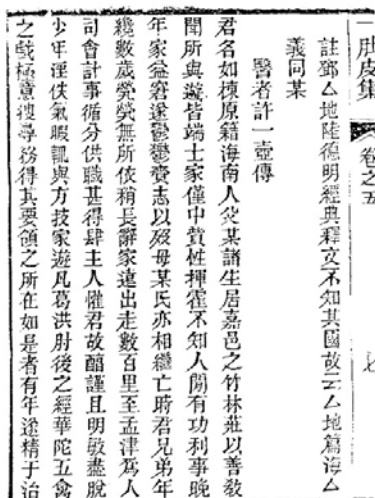 一肚皮集 卷之五
註鄧厶地陸德明經典釋文不知其國故云厶地篇海厶
義同某
醫者許一壺傳
君名如棟原籍海南人父某諸生居嘉邑之竹林莊以善教
聞所與遊皆端士家僅中貲性揮霍不知人間有功利事晚
年家益窘遂鬱鬱賷志以歿母某氏亦相繼亡時君兄弟年
纔數歲煢煢無所依稍長辭家遠出走數百里至孟津為人
司會計事循分供職甚得肆主人懽君故醞謹且明敏盡脫
少年浮佚氣暇輒與方技家遊凡葛洪肘後之經華陀五禽
之戲極意搜尋務得其要領之所在如是者有年遂精于治